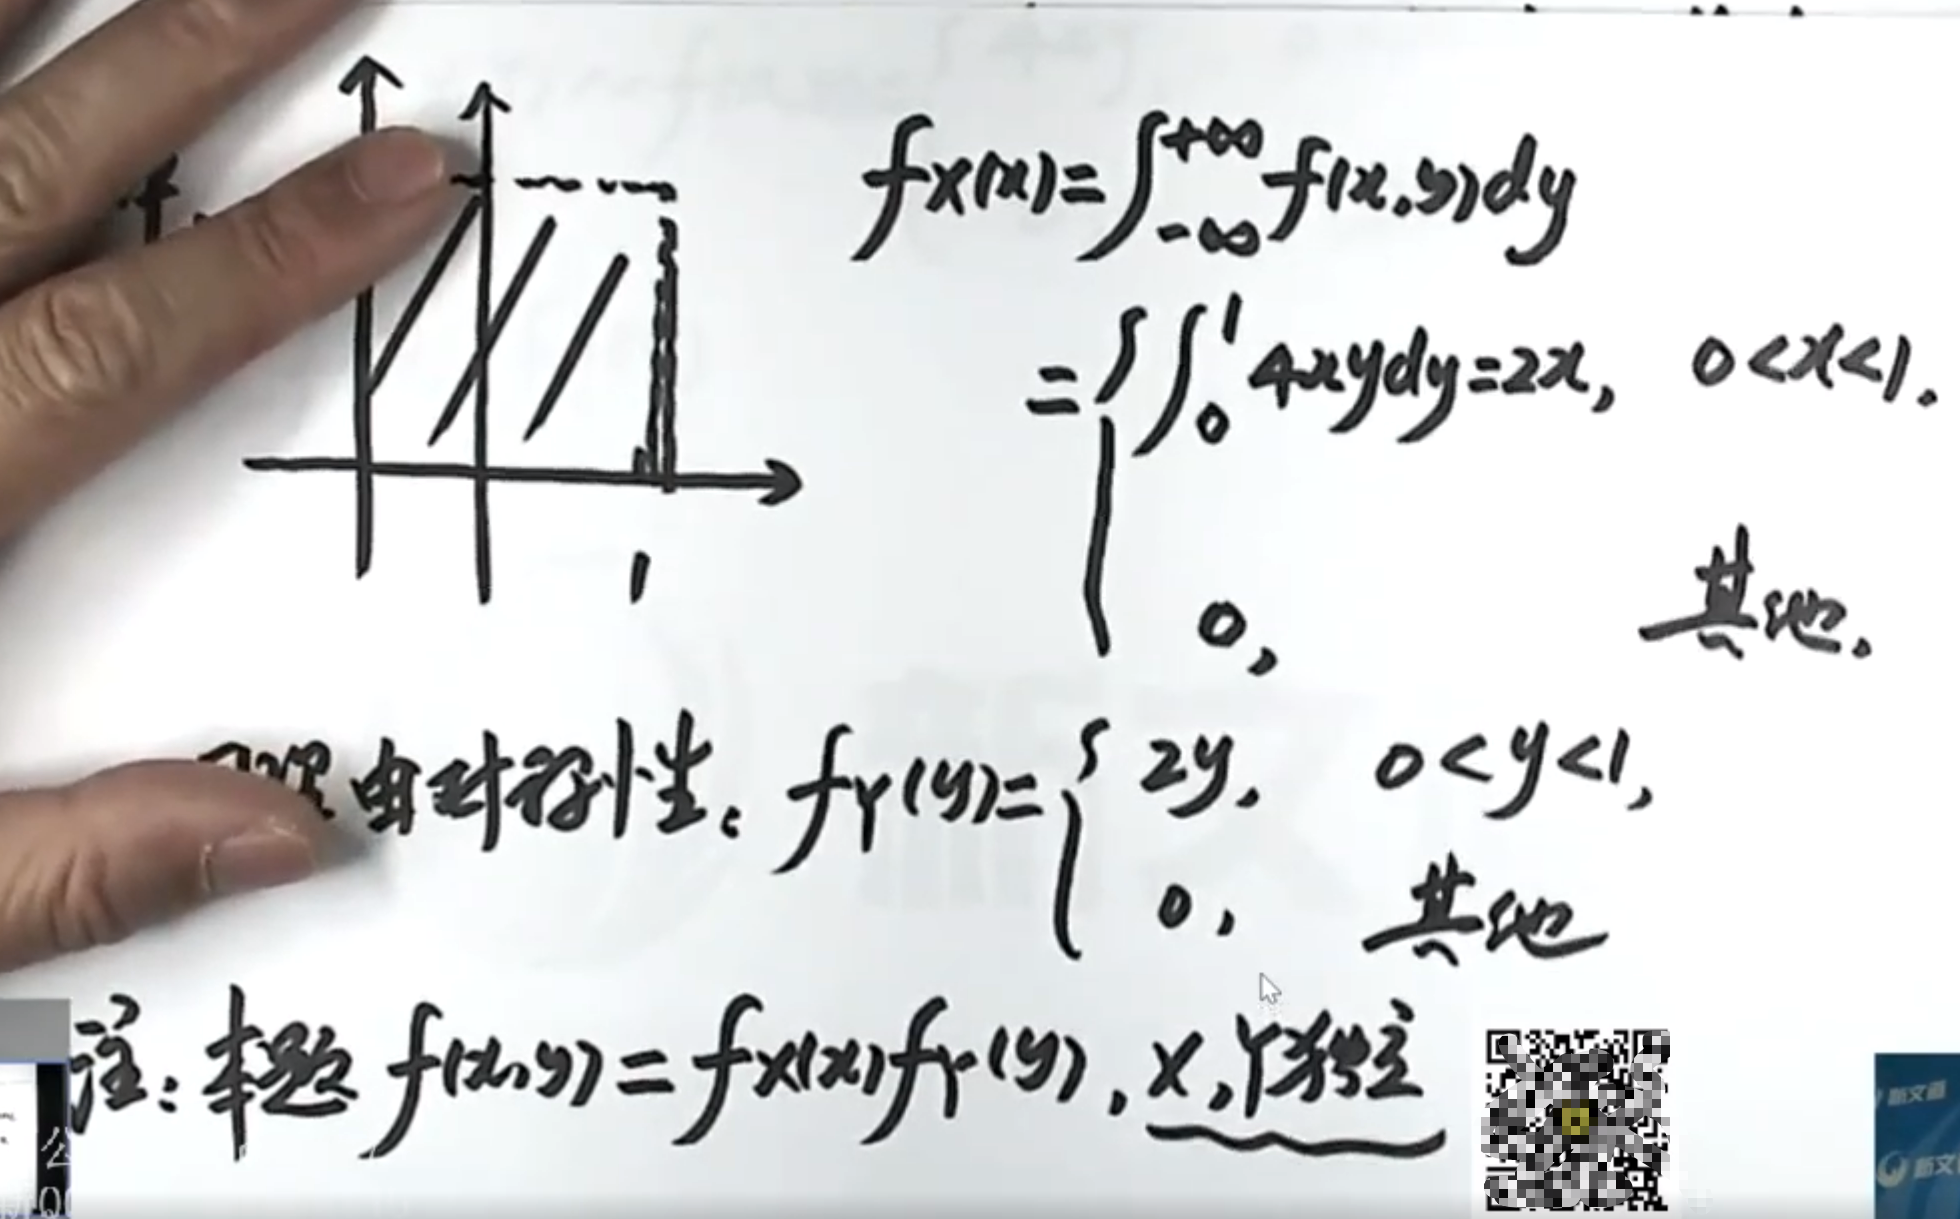 fX(x)=∫_{-∞}^{+∞} f(x,y)dy
={ ∫_0^1 4xydy=2x, 0<x<1.
0, 其他.
1
理由对称性: fY(y)={ 2y, 0<y<1,
0, 其他
注:本题 f(x,y)=fX(x)fY(y), X,Y独立
新文道
新文
公